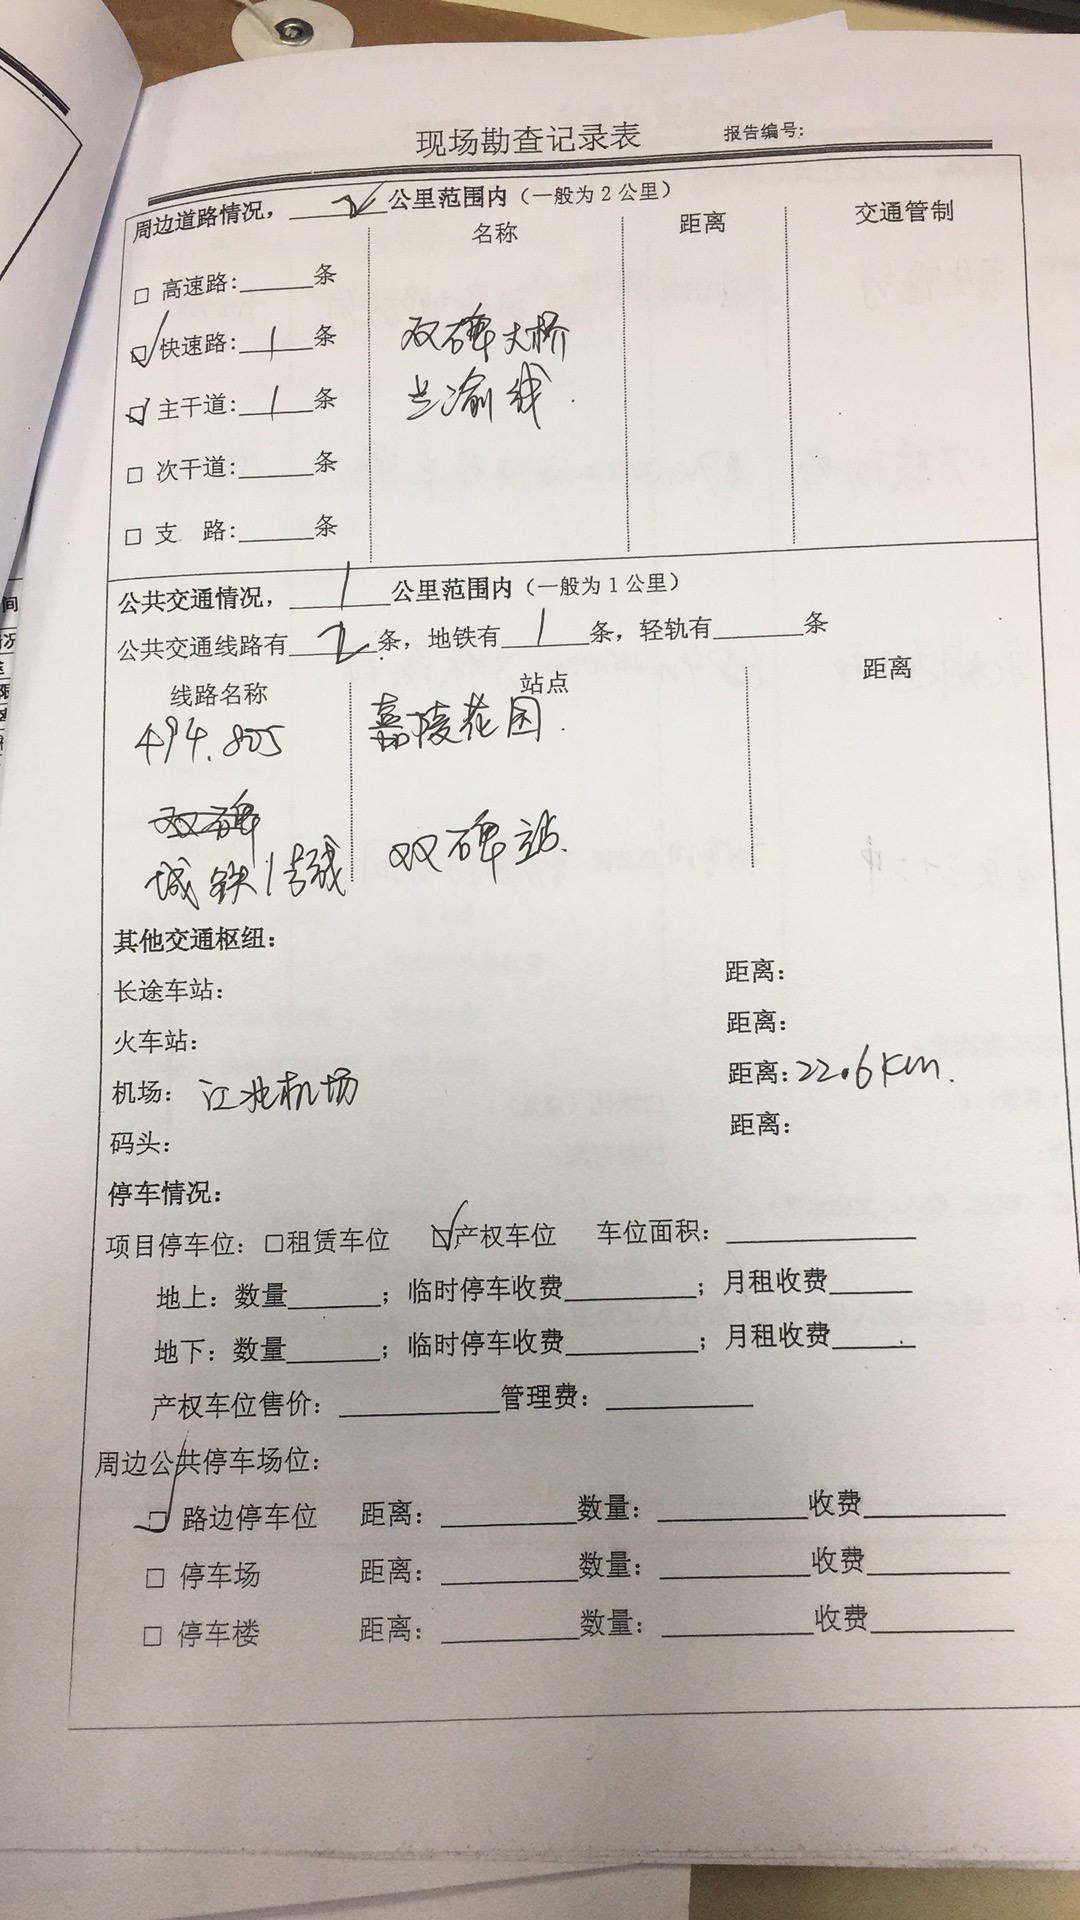 现场勘查记录表 报告编号:
周边道路情况, 2 公里范围内(一般为2公里)
名称 距离 交通管制
□ 高速路:______条
☑ 快速路: 1 条 双碑大桥
☑ 主干道: 1 条 兰渝线.
□ 次干道:______条
□ 支 路:______条
公共交通情况, 1 公里范围内(一般为1公里)
公共交通线路有 2 条, 地铁有 1 条, 轻轨有______条
线路名称 站点 距离
494. 805 嘉陵花园.
双碑
城铁1号线 双碑站.
其他交通枢纽:
长途车站: 距离:
火车站: 距离:
机场: 江北机场 距离: 22.6KM.
码头: 距离:
停车情况:
项目停车位: □租赁车位 ☑产权车位 车位面积:______
地上: 数量______; 临时停车收费______; 月租收费______
地下: 数量______; 临时停车收费______; 月租收费______
产权车位售价:______管理费:______
周边公共停车场位:
☑ 路边停车位 距离:______数量:______收费______
□ 停车场 距离:______数量:______收费______
□ 停车楼 距离:______数量:______收费______